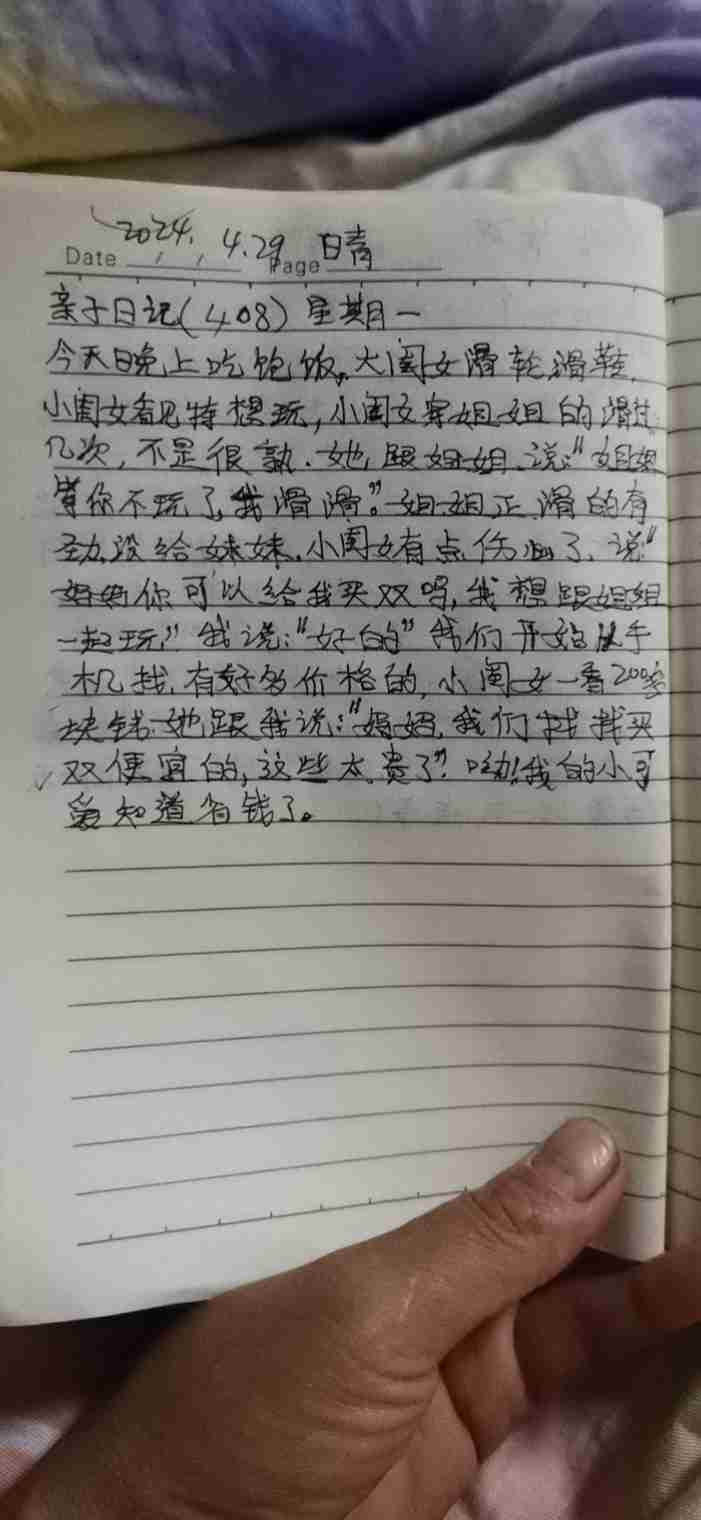 2024. 4.29 晴
Date / / Page
亲子日记(408) 星期一
今天晚上吃饱饭,大闺女滑轮滑鞋,
小闺女看见特想玩,小闺女穿姐姐的滑过
几次,不是很熟.她跟姐姐说:“姐姐
等你不玩了我滑滑。”姐姐正滑的有
劲,没给妹妹.小闺女有点伤心了,说“
妈妈你可以给我买双吗,我想跟姐姐
一起玩”我说:“好的”我们开始从手
机找,有好多价格的,小闺女一看200多
块钱.她跟我说:“妈妈,我们找找买
双便宜的,这些太贵了”.呦!我的小可
爱知道省钱了。